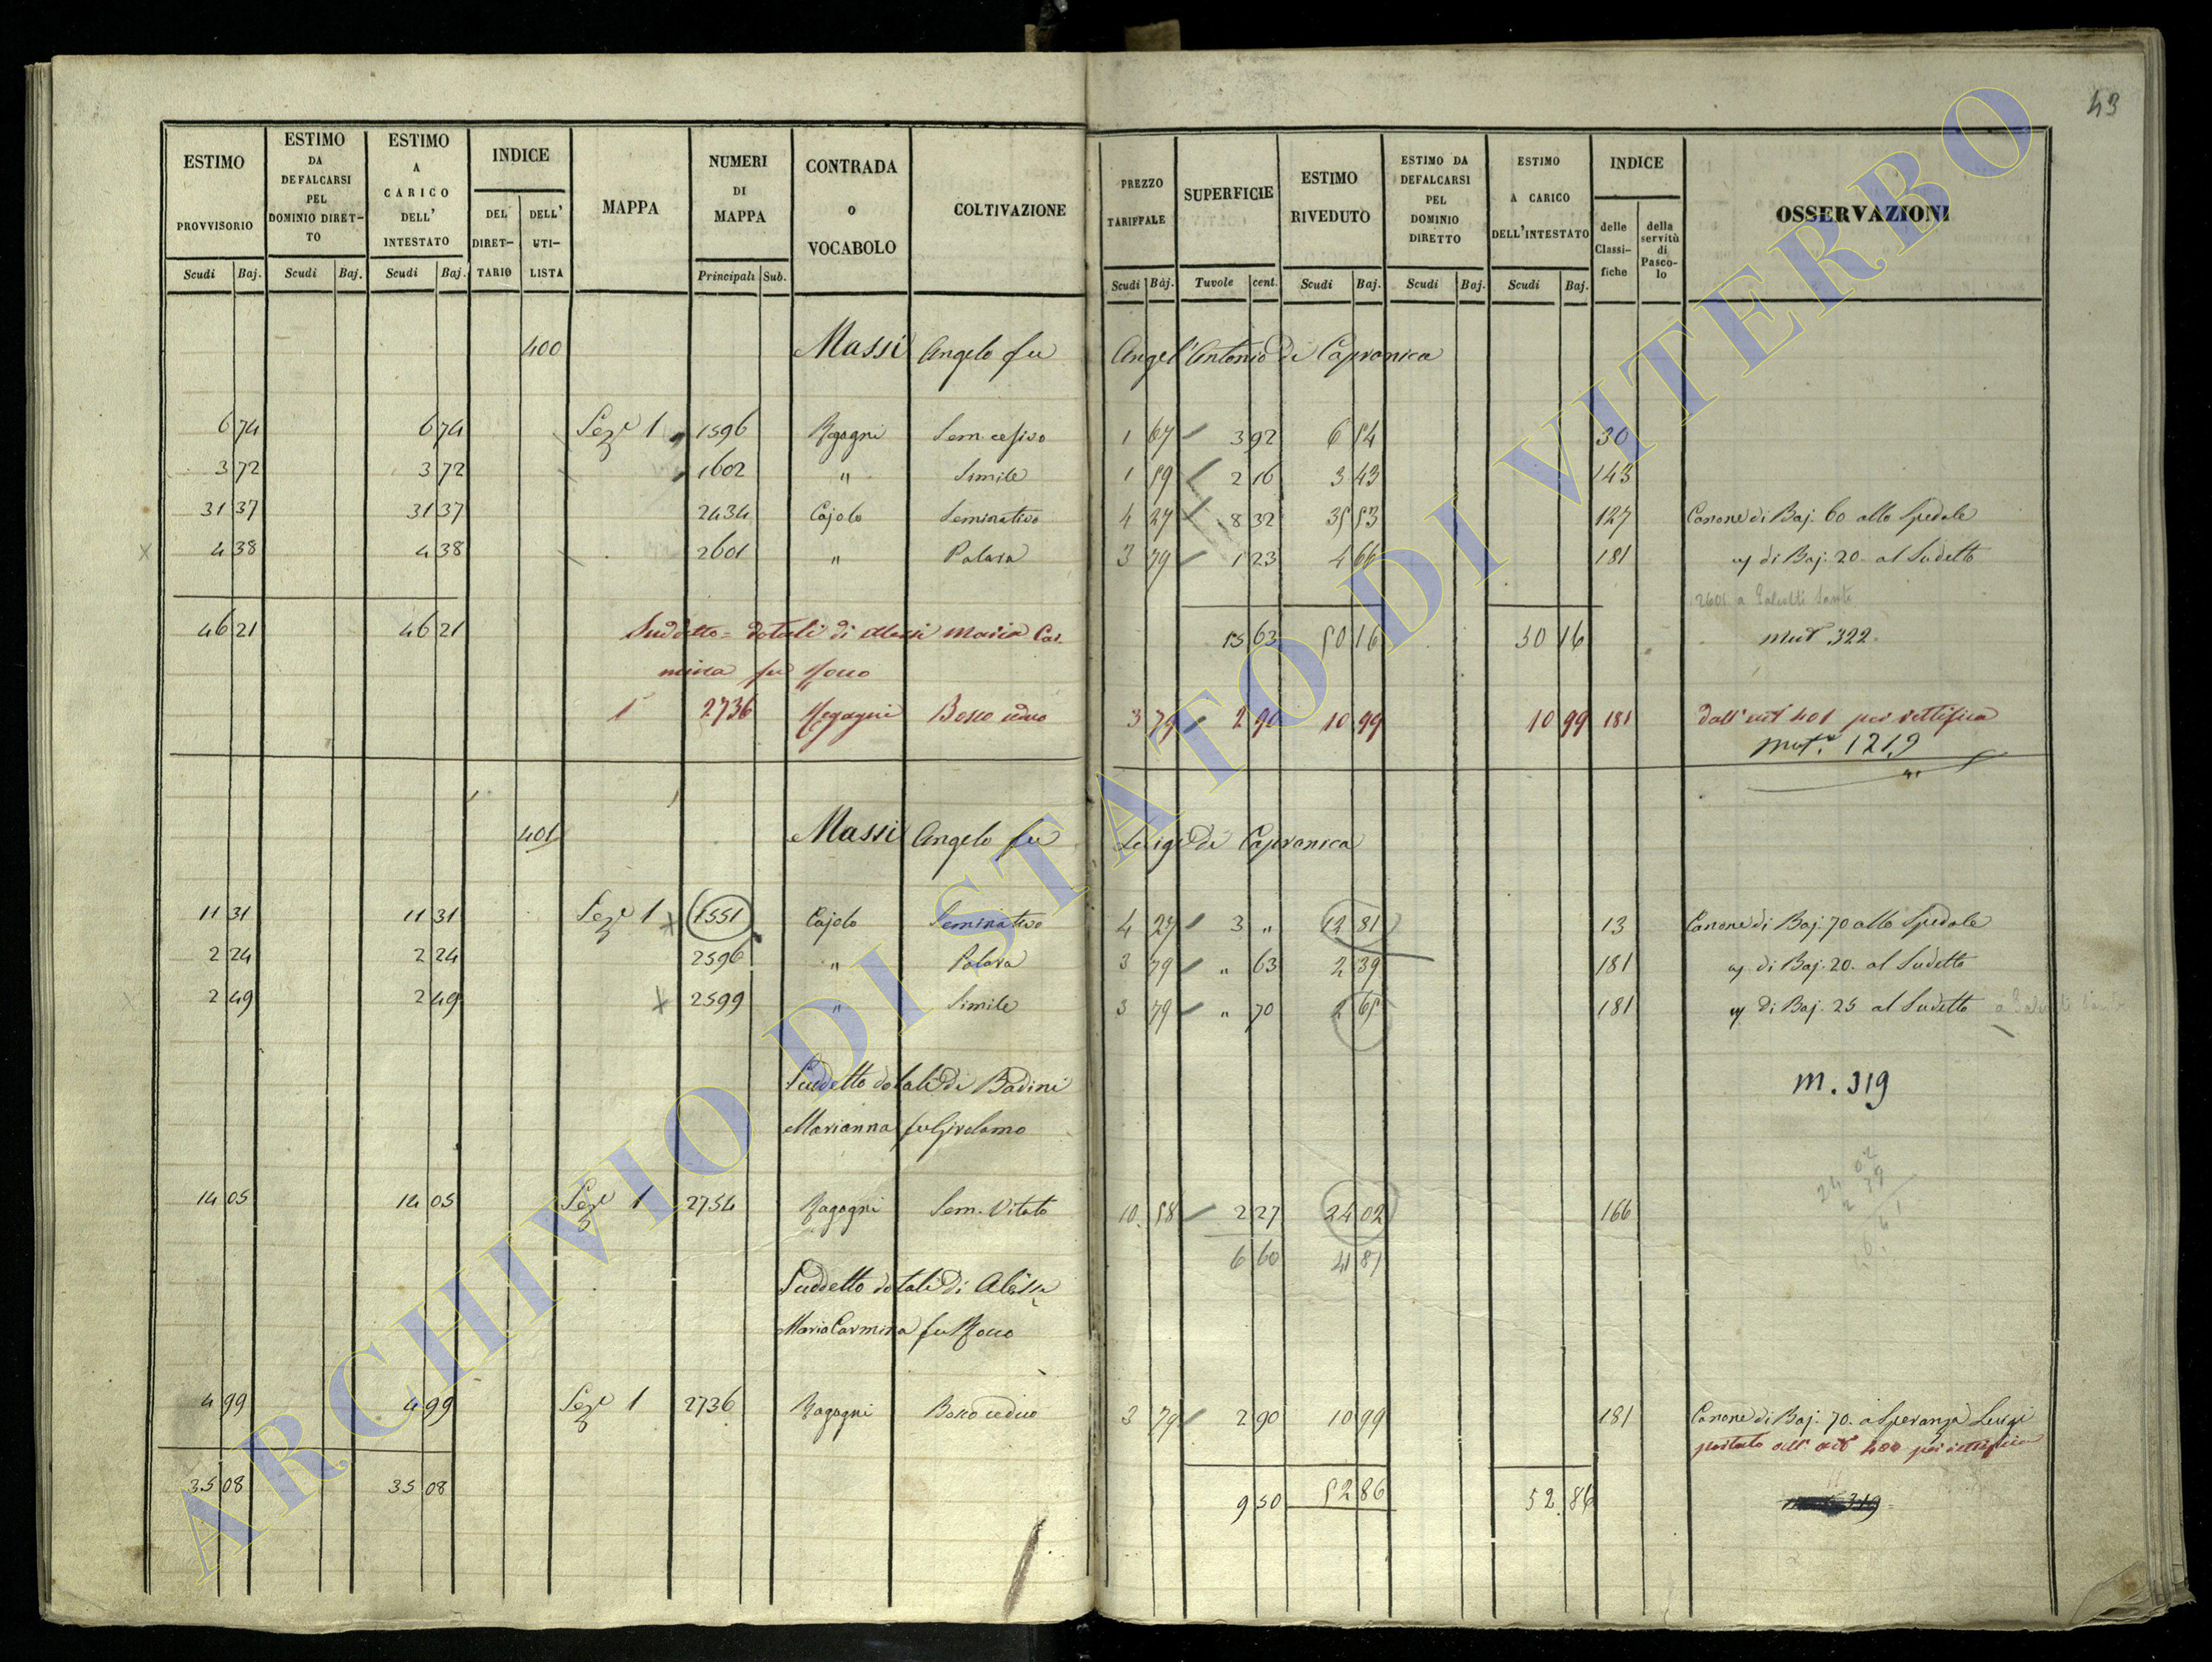 43
ESTIMO PROVVISORIO Scudi Baj.
ESTIMO DA DEFALCARSI PEL DOMINIO DIRETTO Scudi Baj.
ESTIMO A CARICO DELL' INTESTATO Scudi Baj.
INDICE DEL DIRETTARIO DELL' UTILISTA
MAPPA
NUMERI DI MAPPA Principali Sub.
CONTRADA o VOCABOLO
COLTIVAZIONE
PREZZO TARIFFALE Scudi Baj.
SUPERFICIE Tavole cent.
ESTIMO RIVEDUTO Scudi Baj.
ESTIMO DA DEFALCARSI PEL DOMINIO DIRETTO Scudi Baj.
ESTIMO A CARICO DELL'INTESTATO Scudi Baj.
INDICE delle Classifiche della servitù di Pascolo
OSSERVAZIONI
400 Massi Angelo fu Angel'Antonio di Capranica
6 74 6 74 Sez.e 1 1596 Ragagni Sem. cesivo 1 67 3 92 6 54 30
3 72 3 72 1602 " Simile 1 59 2 16 3 43 143
31 37 31 37 2434 Cajolo Seminativo 4 27 8 32 35 53 127 Canone di Baj. 60 allo Spedale
4 38 4 38 2601 " Palara 3 79 1 23 4 66 181 di Baj. 20 al Sudetto
2601 a Galeotti Sante
46 21 46 21 Suddetto = dotali di Alessi Maria Carmina fu Rocco 15 63 50 16 50 16 mut 322
1 2736 Ragagni Bosco ceduo 3 79 2 90 10 99 10 99 181 dall'art 401 per rettifica
mut. 1219
401 Massi Angelo fu Luigi di Capranica
11 31 11 31 Sez.e 1 1551 Cajolo Seminativo 4 27 3 " 12 81 13 Canone di Baj. 70 allo Spedale
2 24 2 24 2596 " Palara 3 79 " 63 2 39 181 di Baj. 20. al Sudetto
2 49 2 49 2599 " Simile 3 79 " 70 2 65 181 di Baj. 25 al Sudetto
Suddetto dotali di Badini
m. 319
Marianna fu Girolamo
14 05 14 05 Sez.e 1 2754 Ragagni Sem. Vitato 10 58 2 27 24 02 166
6 60 41 87
Suddetto dotali di Alessi
Maria Carmina fu Rocco
4 99 4 99 Sez.e 1 2736 Ragagni Bosco ceduo 3 79 2 90 10 99 181 Canone di Baj. 70. a Speranza Luigi
portato all'art 400 per rettifica
35 08 35 08 9 50 52 86 52 86
319
ARCHIVIO DI STATO DI VITERBO